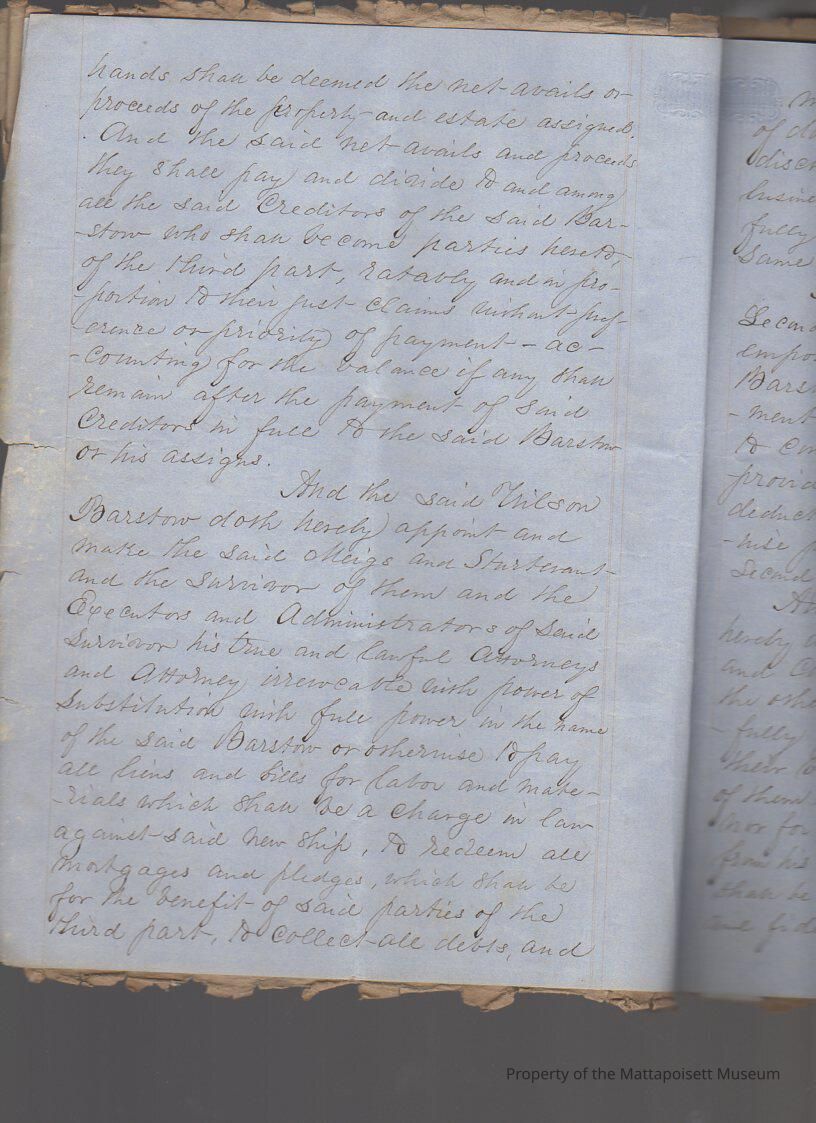 hands shall be deemed the net avails or
proceeds of the property and estate assigned.
And the said net avails and proceeds
they shall pay and divide to and among
all the said Creditors of the said Bar-
-stow who shall become parties hereto,
of the third part, ratably and in pro-
-portion to their just claims without pref-
-erence or priority of payment - ac-
-counting for the balance if any shall
remain after the payment of said
Creditors in full to the said Barstow
or his assigns.
And the said Wilson
Barstow doth hereby appoint and
make the said Meigs and Sturtevant
and the survivor of them and the
Executors and Administrators of said
survivor his true and lawful Attorneys
and Attorney irrevocable with power of
substitution with full power in the name
of the said Barstow or otherwise to pay
all liens and bills for labor and mate-
-rials which shall be a charge in law
against said new ship, to redeem all
mortgages and pledges, which shall be
for the benefit of said parties of the
third part, to collect all debts, and
of
lusine
fully
same
Second
empo
Bars
-ment
to con
provid
deduct
-wise
second
hereby
and
the othe
-fully
their
of them
nor for
from his
shall be
and fid
Property of the Mattapoisett Museum